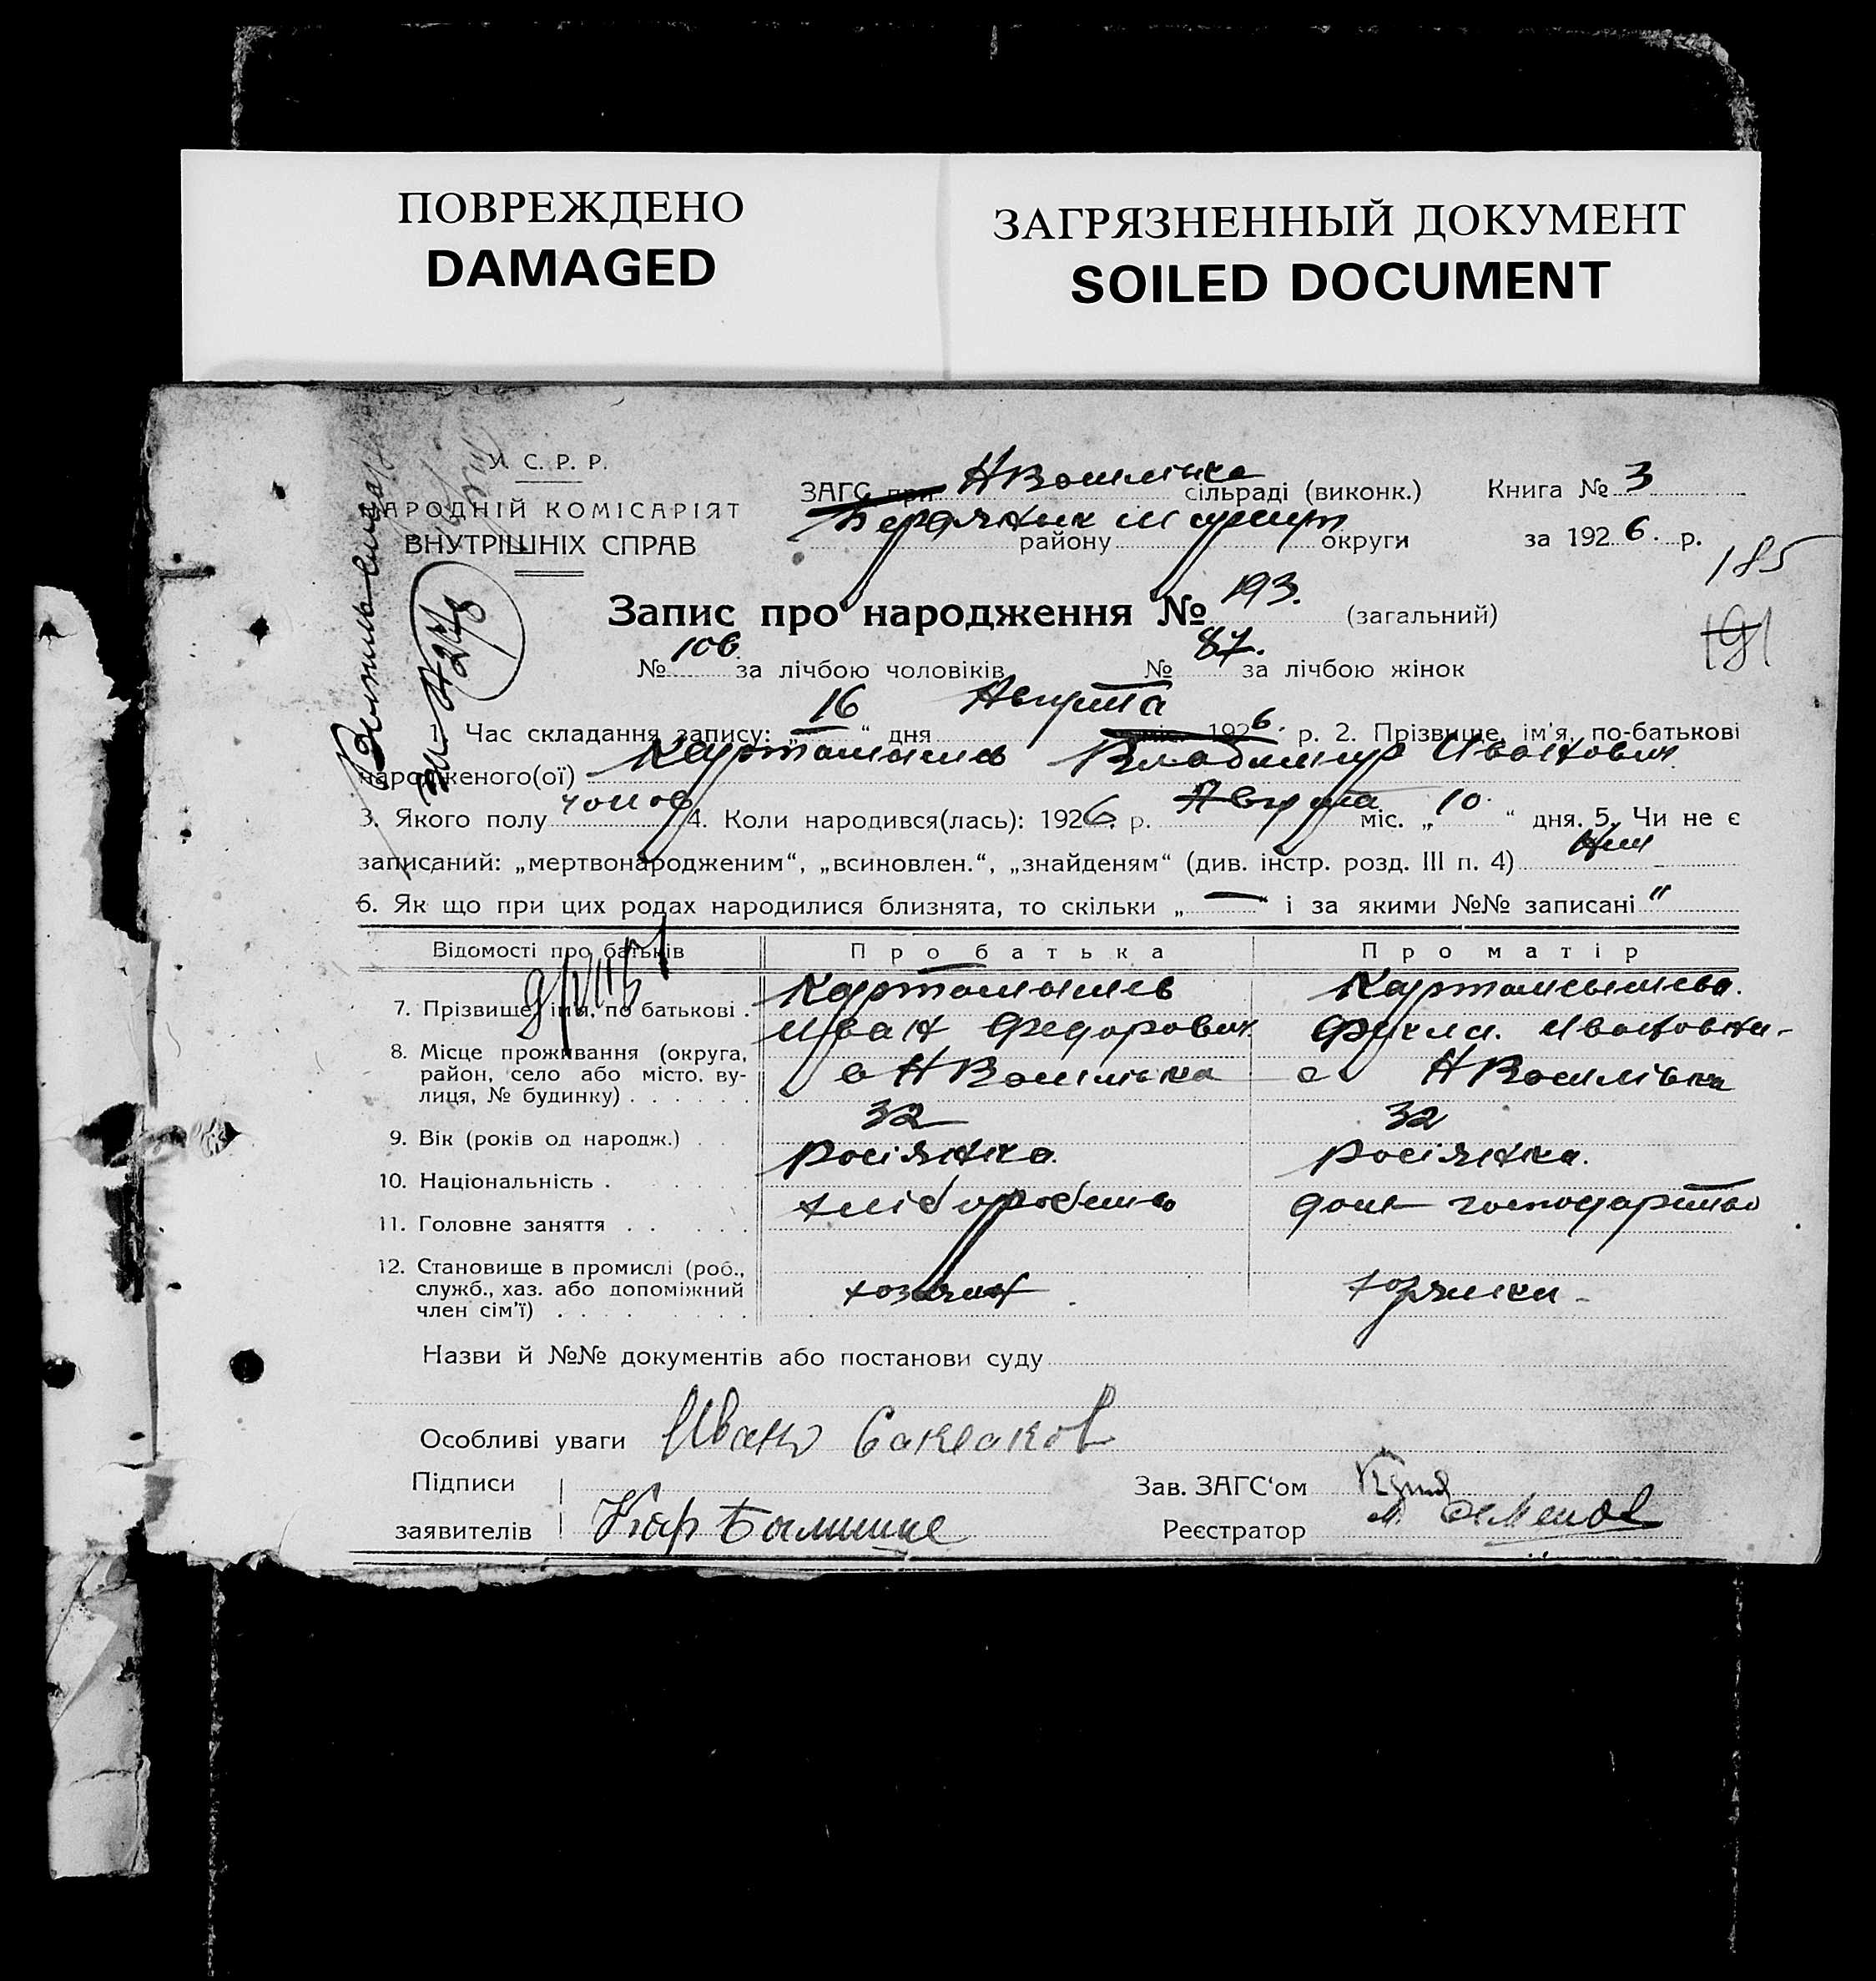 ПОВРЕЖДЕНО
DAMAGED
ЗАГРЯЗНЕННЫЙ ДОКУМЕНТ
SOILED DOCUMENT
У. С. Р. Р.
НАРОДНІЙ КОМІСАРІЯТ
ВНУТРІШНІХ СПРАВ
ЗАГС при НВасилівка сільраді (виконк.) Книга № 3
району округи за 1926. р.
185
191
Запис про народження № 193. (загальний)
№ 106 за лічбою чоловіків № 87. за лічбою жінок
1. Час складання запису: „16“ дня Августа міс. 1926. р. 2. Прізвище, ім'я, по-батькові
народженого(ої) Карташишев Владимир Иванович
3. Якого полу чолов 4. Коли народився(лась): 1926. р. Августа міс. „10“ дня. 5. Чи не є
записаний: „мертвонародженим“, „всиновлен.“, „знайденям“ (див. інстр. розд. III п. 4)
6. Як що при цих родах народилися близнята, то скільки „—“ і за якими №№ записані "
Відомості про батьків Про батька Про матір
7. Прізвище, ім'я, по батькові . Карташишев Карташишева.
Иван Федорович Фекла Ивановна
8. Місце проживання (округа, район, село або місто, вулиця, № будинку) с НВасилівка с НВасилівка
9. Вік (років од народж.) . 32 32
10. Національність . росіянка росіянка.
11. Головне заняття . хліборобство дом господарство
12. Становище в промислі (роб., служб., хаз. або допоміжний член сім'ї) хозяин хозяйка
Назви й №№ документів або постанови суду
Особливі уваги Иван
Підписи Зав. ЗАГС'ом
заявителів Реєстратор